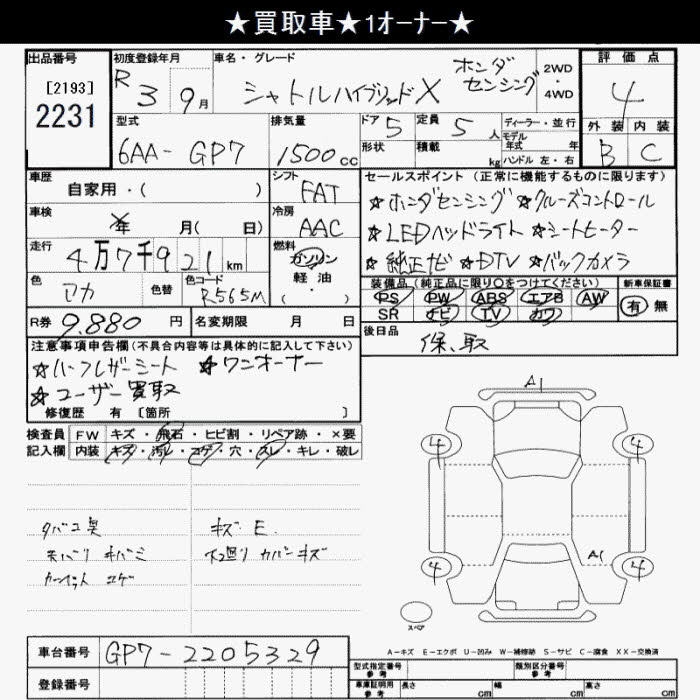 ★買取車★1オーナー★
出品番号
[2193]
2231
初度登録年月
R3 9月
車名・グレード
シャトルハイブリッドX ホンダセンシング
2WD
・
4WD
評価点
4
外装 内装
B C
型式
6AA-GP7
排気量
1500cc
ドア 5
形状
定員 5人
積載 kg
ディーラー・並行
モデル年式 年
ハンドル 左・右
車歴
自家用・( )
シフト
FAT
車検
年 月( 日)
冷房
AAC
走行
4万7千921km
燃料
ガソリン
軽・油
( ・ )
色
アカ
色替
色コード
R565M
セールスポイント(正常に機能するものに限ります)
★ホンダセンシング ★クルーズコントロール
★LEDヘッドライト ★シートヒーター
★純正ナビ ★DTV ★バックカメラ
装備品(純正品に限り○をつけてください)
PS PW ABS エアB AW
SR ナビ TV カワ
新車保証書
有 無
R券 9.880円
名変期限 月 日
後日品
保、取
注意事項申告欄(不具合内容等は具体的に記入して下さい)
★ハーフレザーシート ★ワンオーナー
★ユーザー買取
修復歴 有 [箇所 ]
検査員
記入欄
FW キズ・飛石・ヒビ割・リペア跡・×要
内装 キズ・汚レ・コゲ・穴・スレ・キレ・破レ
タバコ臭
天バリ キバミ
カーペット コゲ
キズ E.
下廻り カバーキズ
A1
4
4
A1
4
4
スペア
A-キズ E-エクボ U-凹み W-補修跡 S-サビ C-腐食 XX-交換済
車台番号 GP7-2205329
登録番号
型式指定番号
参考
類別区分番号
参考
車庫証明用
参考
長さ cm 幅 cm 高さ cm